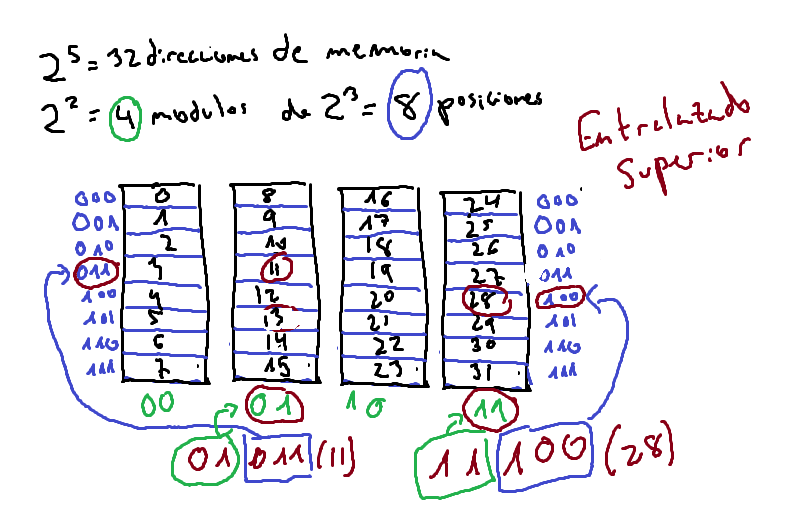 2⁵ = 32 direcciones de memoria
2² = 4 modulos de 2³ = 8 posiciones
Entralazado
Superior
000 0 8 16 24 000
001 1 9 17 25 001
010 2 10 18 26 010
011 3 11 19 27 011
100 4 12 20 28 100
101 5 13 21 29 101
110 6 14 22 30 110
111 7 15 23 31 111
00 01 10 11
01 011 (11) 11 100 (28)